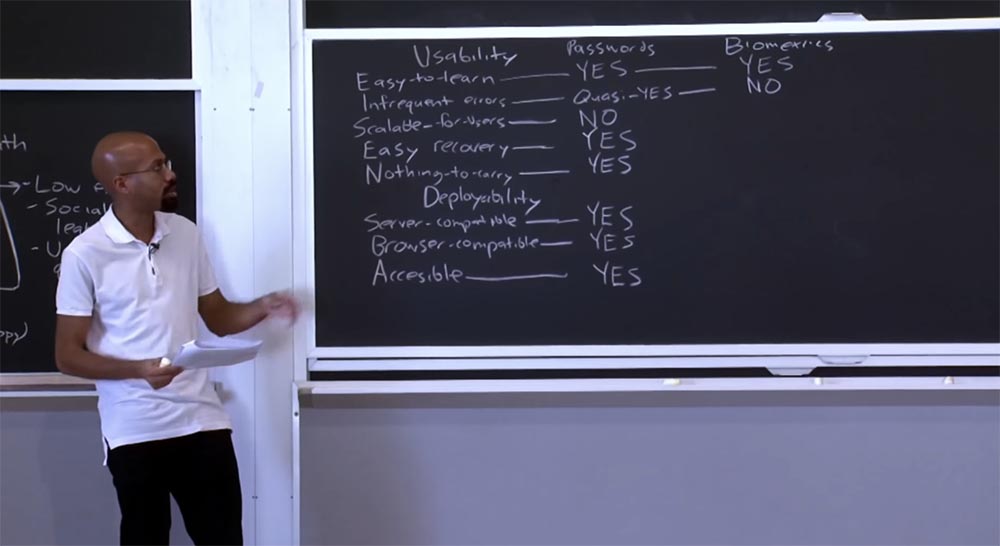 th
→-Low
- Social
lea
- U
ppy)
Usability Passwords Biometrics
Easy-to-learn YES YES
Infrequent errors Quasi-YES NO
Scalable-for-users NO
Easy recovery YES
Nothing-to-carry YES
Deployability
Server-compatible YES
Browser-compatible YES
Accesible YES